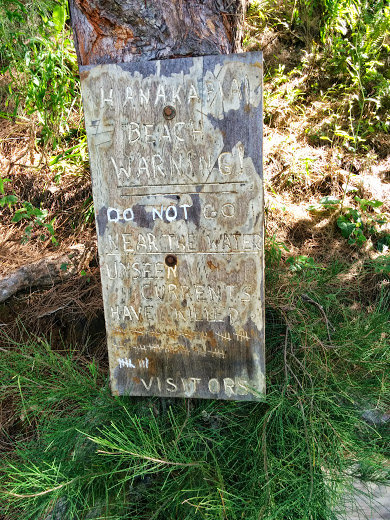 HANAKAPIAI
BEACH
WARNING!
DO NOT GO
NEAR THE WATER
UNSEEN
CURRENTS
HAVE KILLED
VISITORS